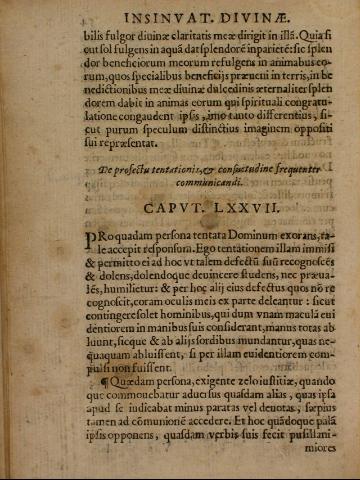 INSINVAT. DIVINÆ.
bilis fulgor diuinæ claritatis meæ dirigit in illã. Quia si
cut sol fulgens in aquã dat splendorẽ in pariete: sic splen
dor beneficiorum meorum refulgens in animabus eo-
rum, quos specialibus beneficijs præueni in terris, in be
nedictionibus meæ diuinæ dulcedinis æternaliter splen
dorem dabit in animas eorum qui spirituali congratu-
latione congaudent ipsis, imo tanto differentius, si-
cut purum speculum distinctius imaginem oppositi
sui repræsentat.
De profectu tentationis, & consuetudine frequenter
communicandi.
CAPVT. LXXVII.
PRo quadam persona tentata Dominum exorans, ta-
le accepit responsum. Ego tentationem illam immisi
& permitto ei ad hoc vt talem defectũ suũ recognoscẽs
& dolens, dolendoque deuincere studens, nec præua-
lẽs, humilietur: & per hoc alij eius defectus quos nõ re
cognoscit, coram oculis meis ex parte deleantur: sicut
contingere solet hominibus, qui dum vnam maculã eui
dentiorem in manibus suis considerant, manus totas ab
luunt, sicque & ab alijs sordibus mundantur, quas ne-
quaquam abluissent, si per illam euidentiorem com-
pulsi non fuissent.
¶ Quædam persona, exigente zelo iustitiæ, quando
que commouebatur aduersus quasdam alias, quas ipsa
apud se iudicabat minus paratas vel deuotas, sæpius
tamen ad cõmunionẽ accedere. Et hoc quãdoque palã
ipsis opponens, quasdam verbis suis fecit pusillani-
miores